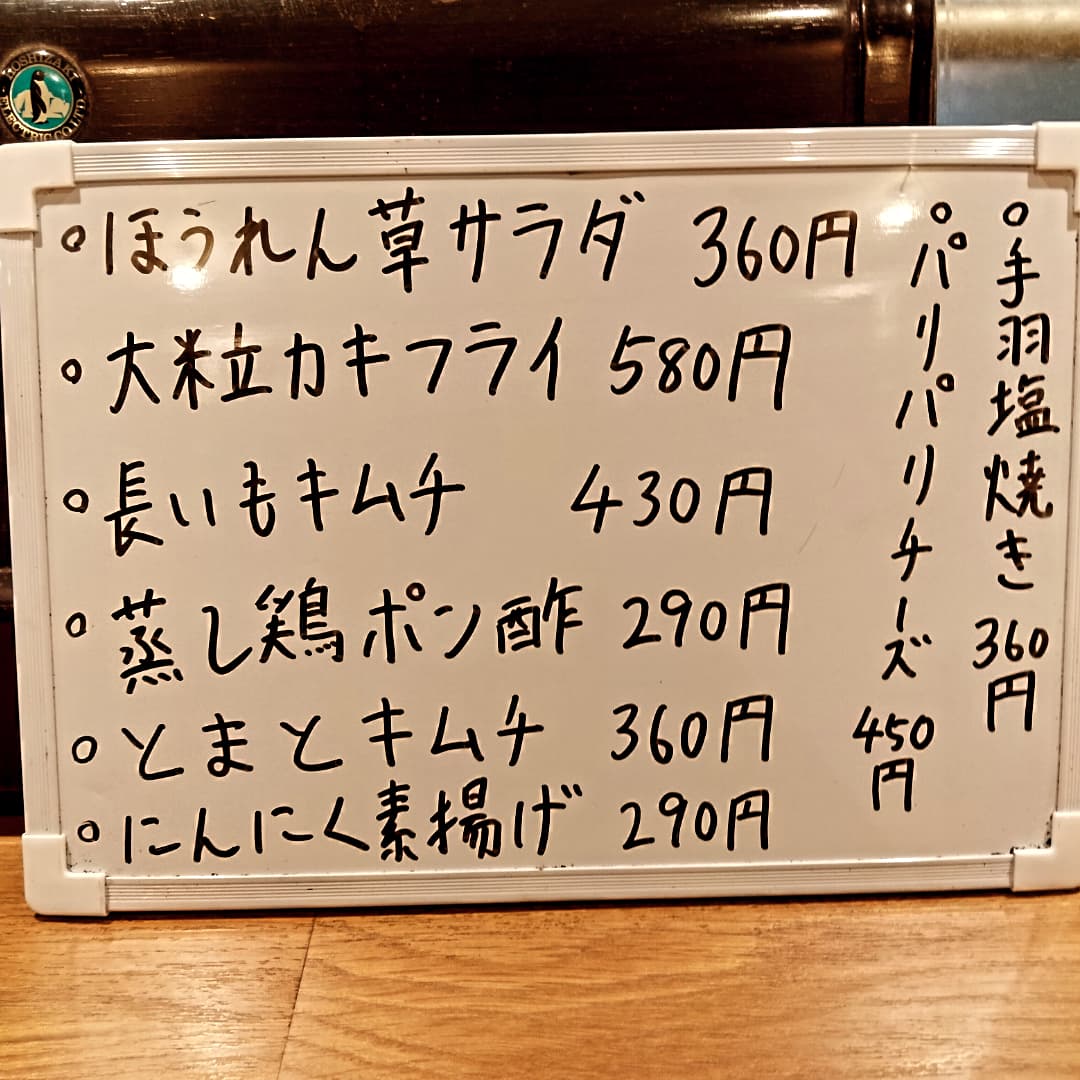 HOSHIZAKI
ELECTRIC CO.LTD.
◦ほうれん草サラダ 360円
◦大粒カキフライ 580円
◦長いもキムチ 430円
◦蒸し鶏ポン酢 290円
◦とまとキムチ 360円
◦にんにく素揚げ 290円
◦手羽塩焼き 360円
◦パリパリチーズ 450円